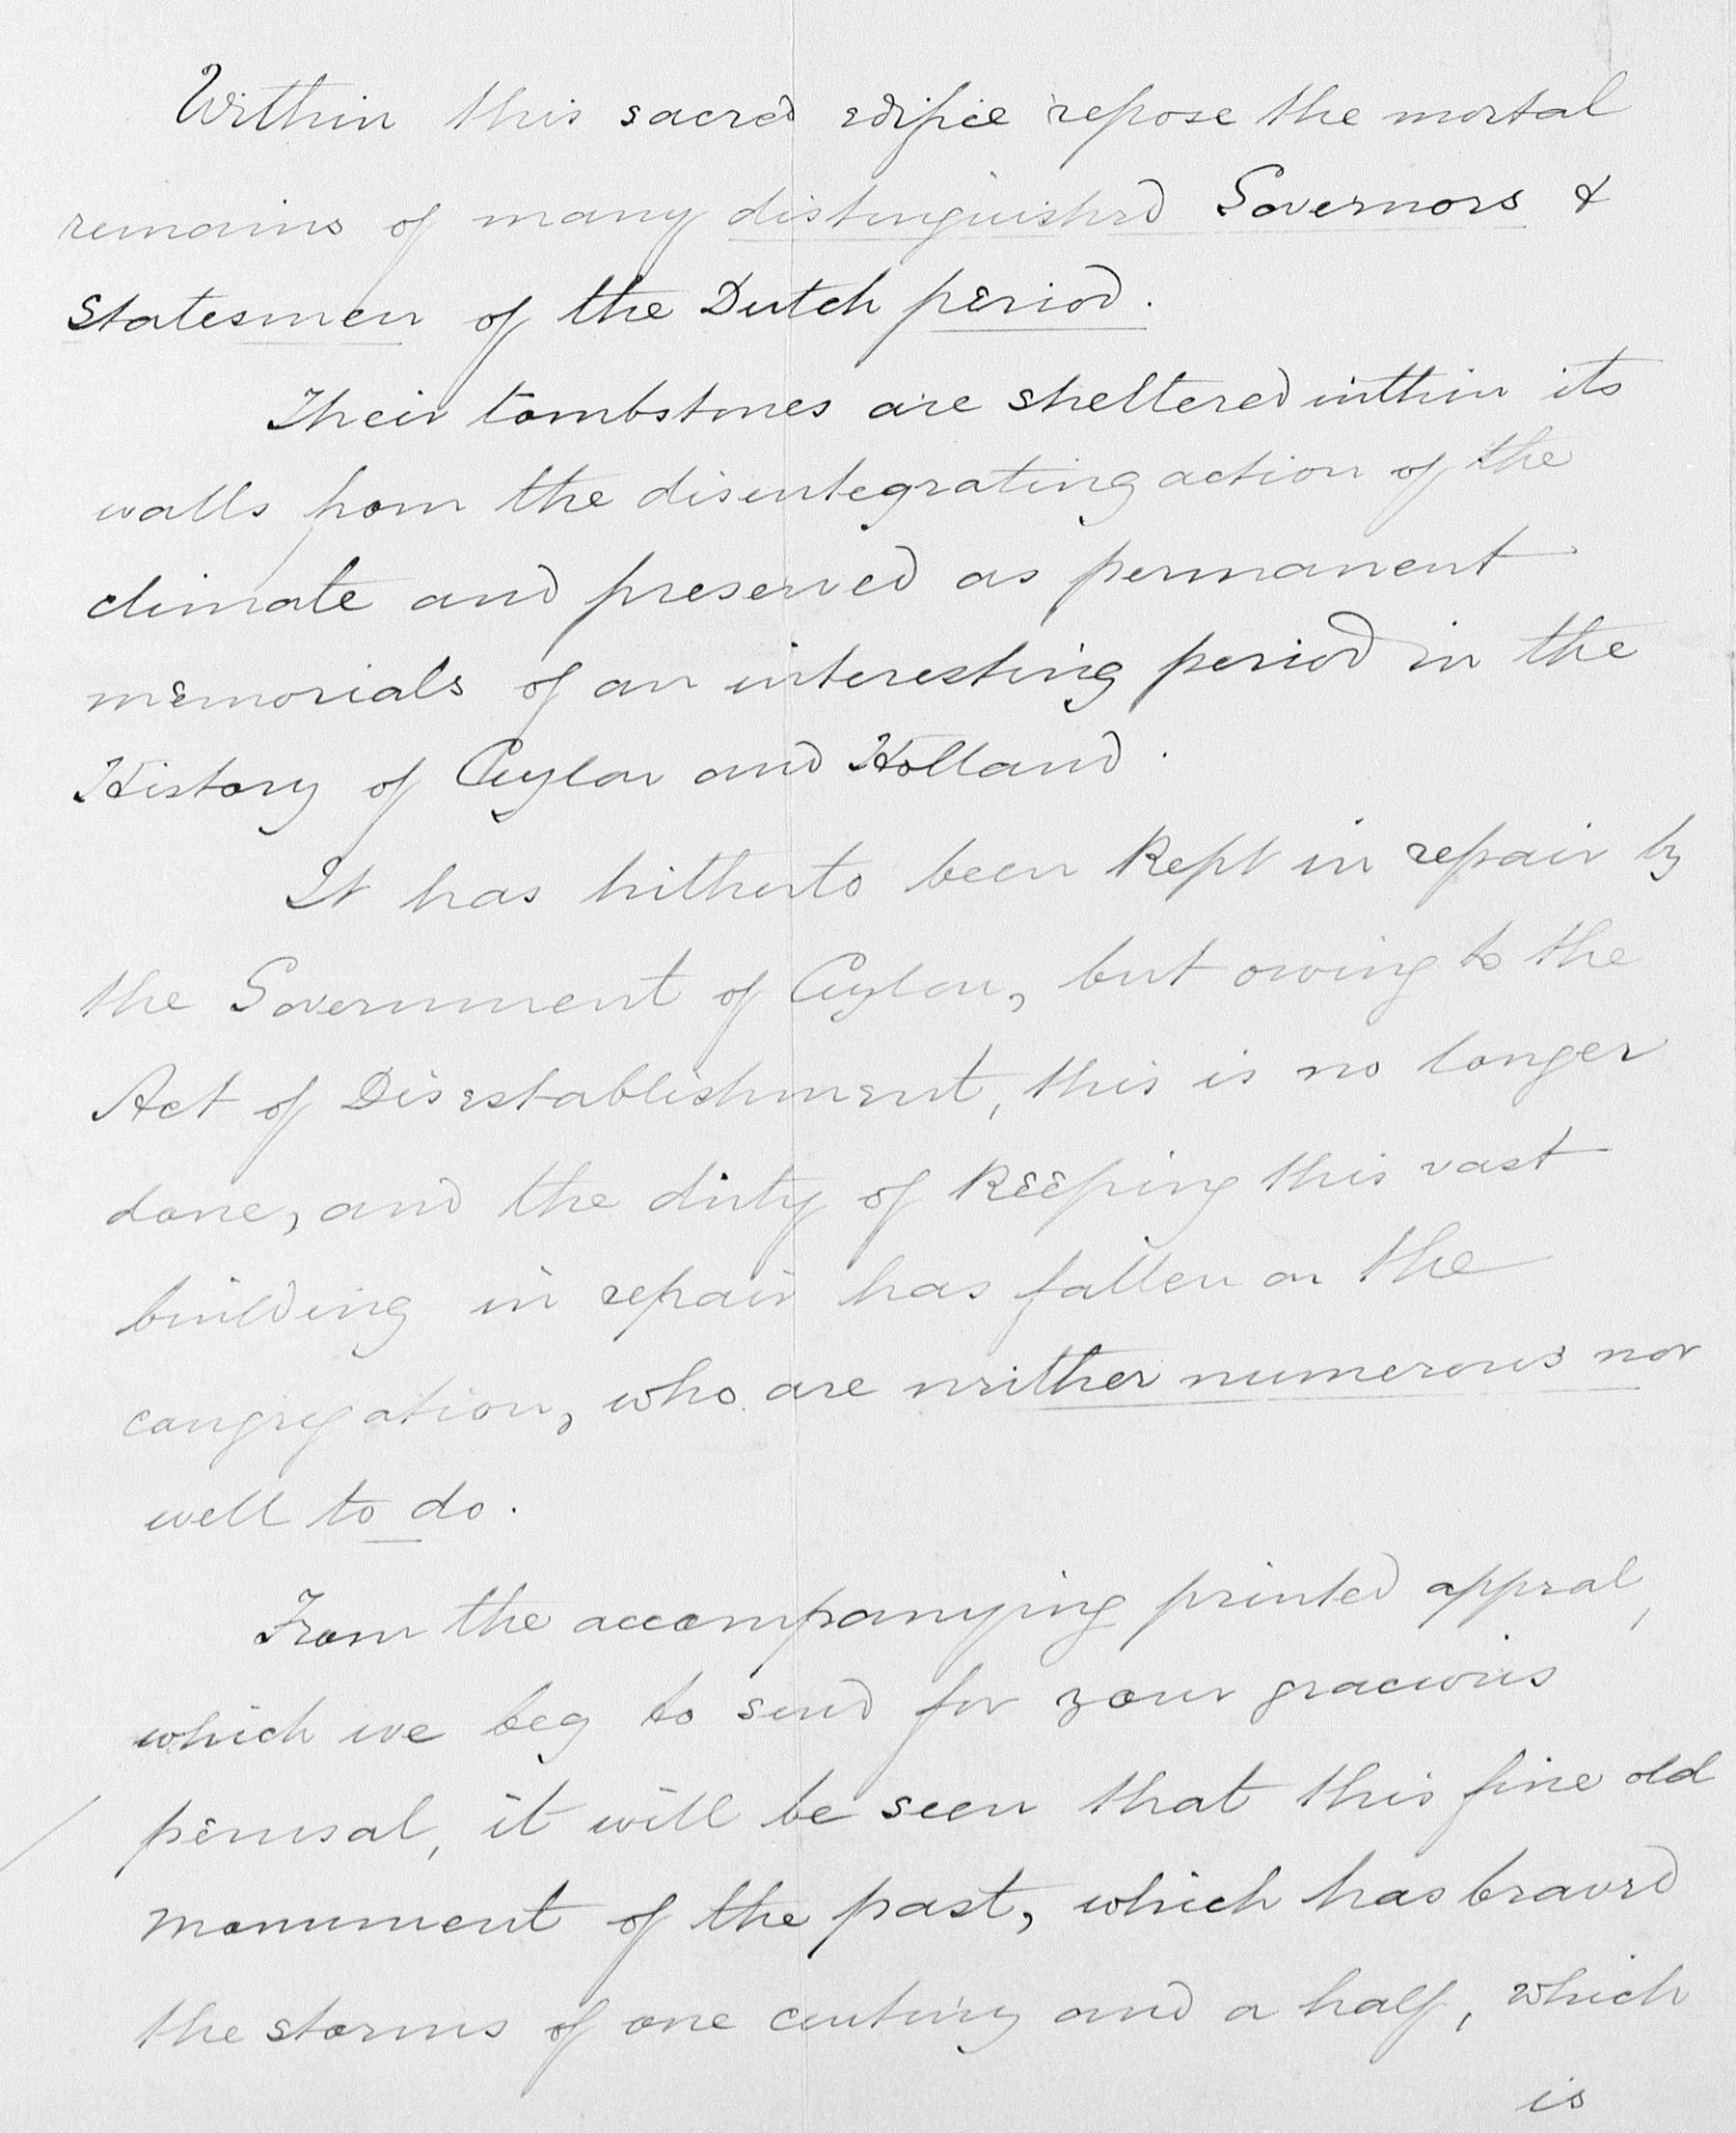 Within this sacred edifice repose the mortal
remains of many distinguished Governors &
Statesmen of the Dutch period.
Their tombstones are sheltered within its
walls from the disintegrating action of the
climate and preserved as permanent
memorials of an interesting period in the
History of Ceylon and Holland.
It has hitherto been kept in repair by
the Government of Ceylon, but owing to the
Act of Disestablishment, this is no longer
done, and the duty of keeping this vast
building in repair has fallen on the
congregation, who are neither numerous nor
well to do.
From the accompanying printed appeal,
which we beg to send for your gracious
perusal, it will be seen that this fine old
monument of the past, which has braved
the storms of one century and a half, which
is